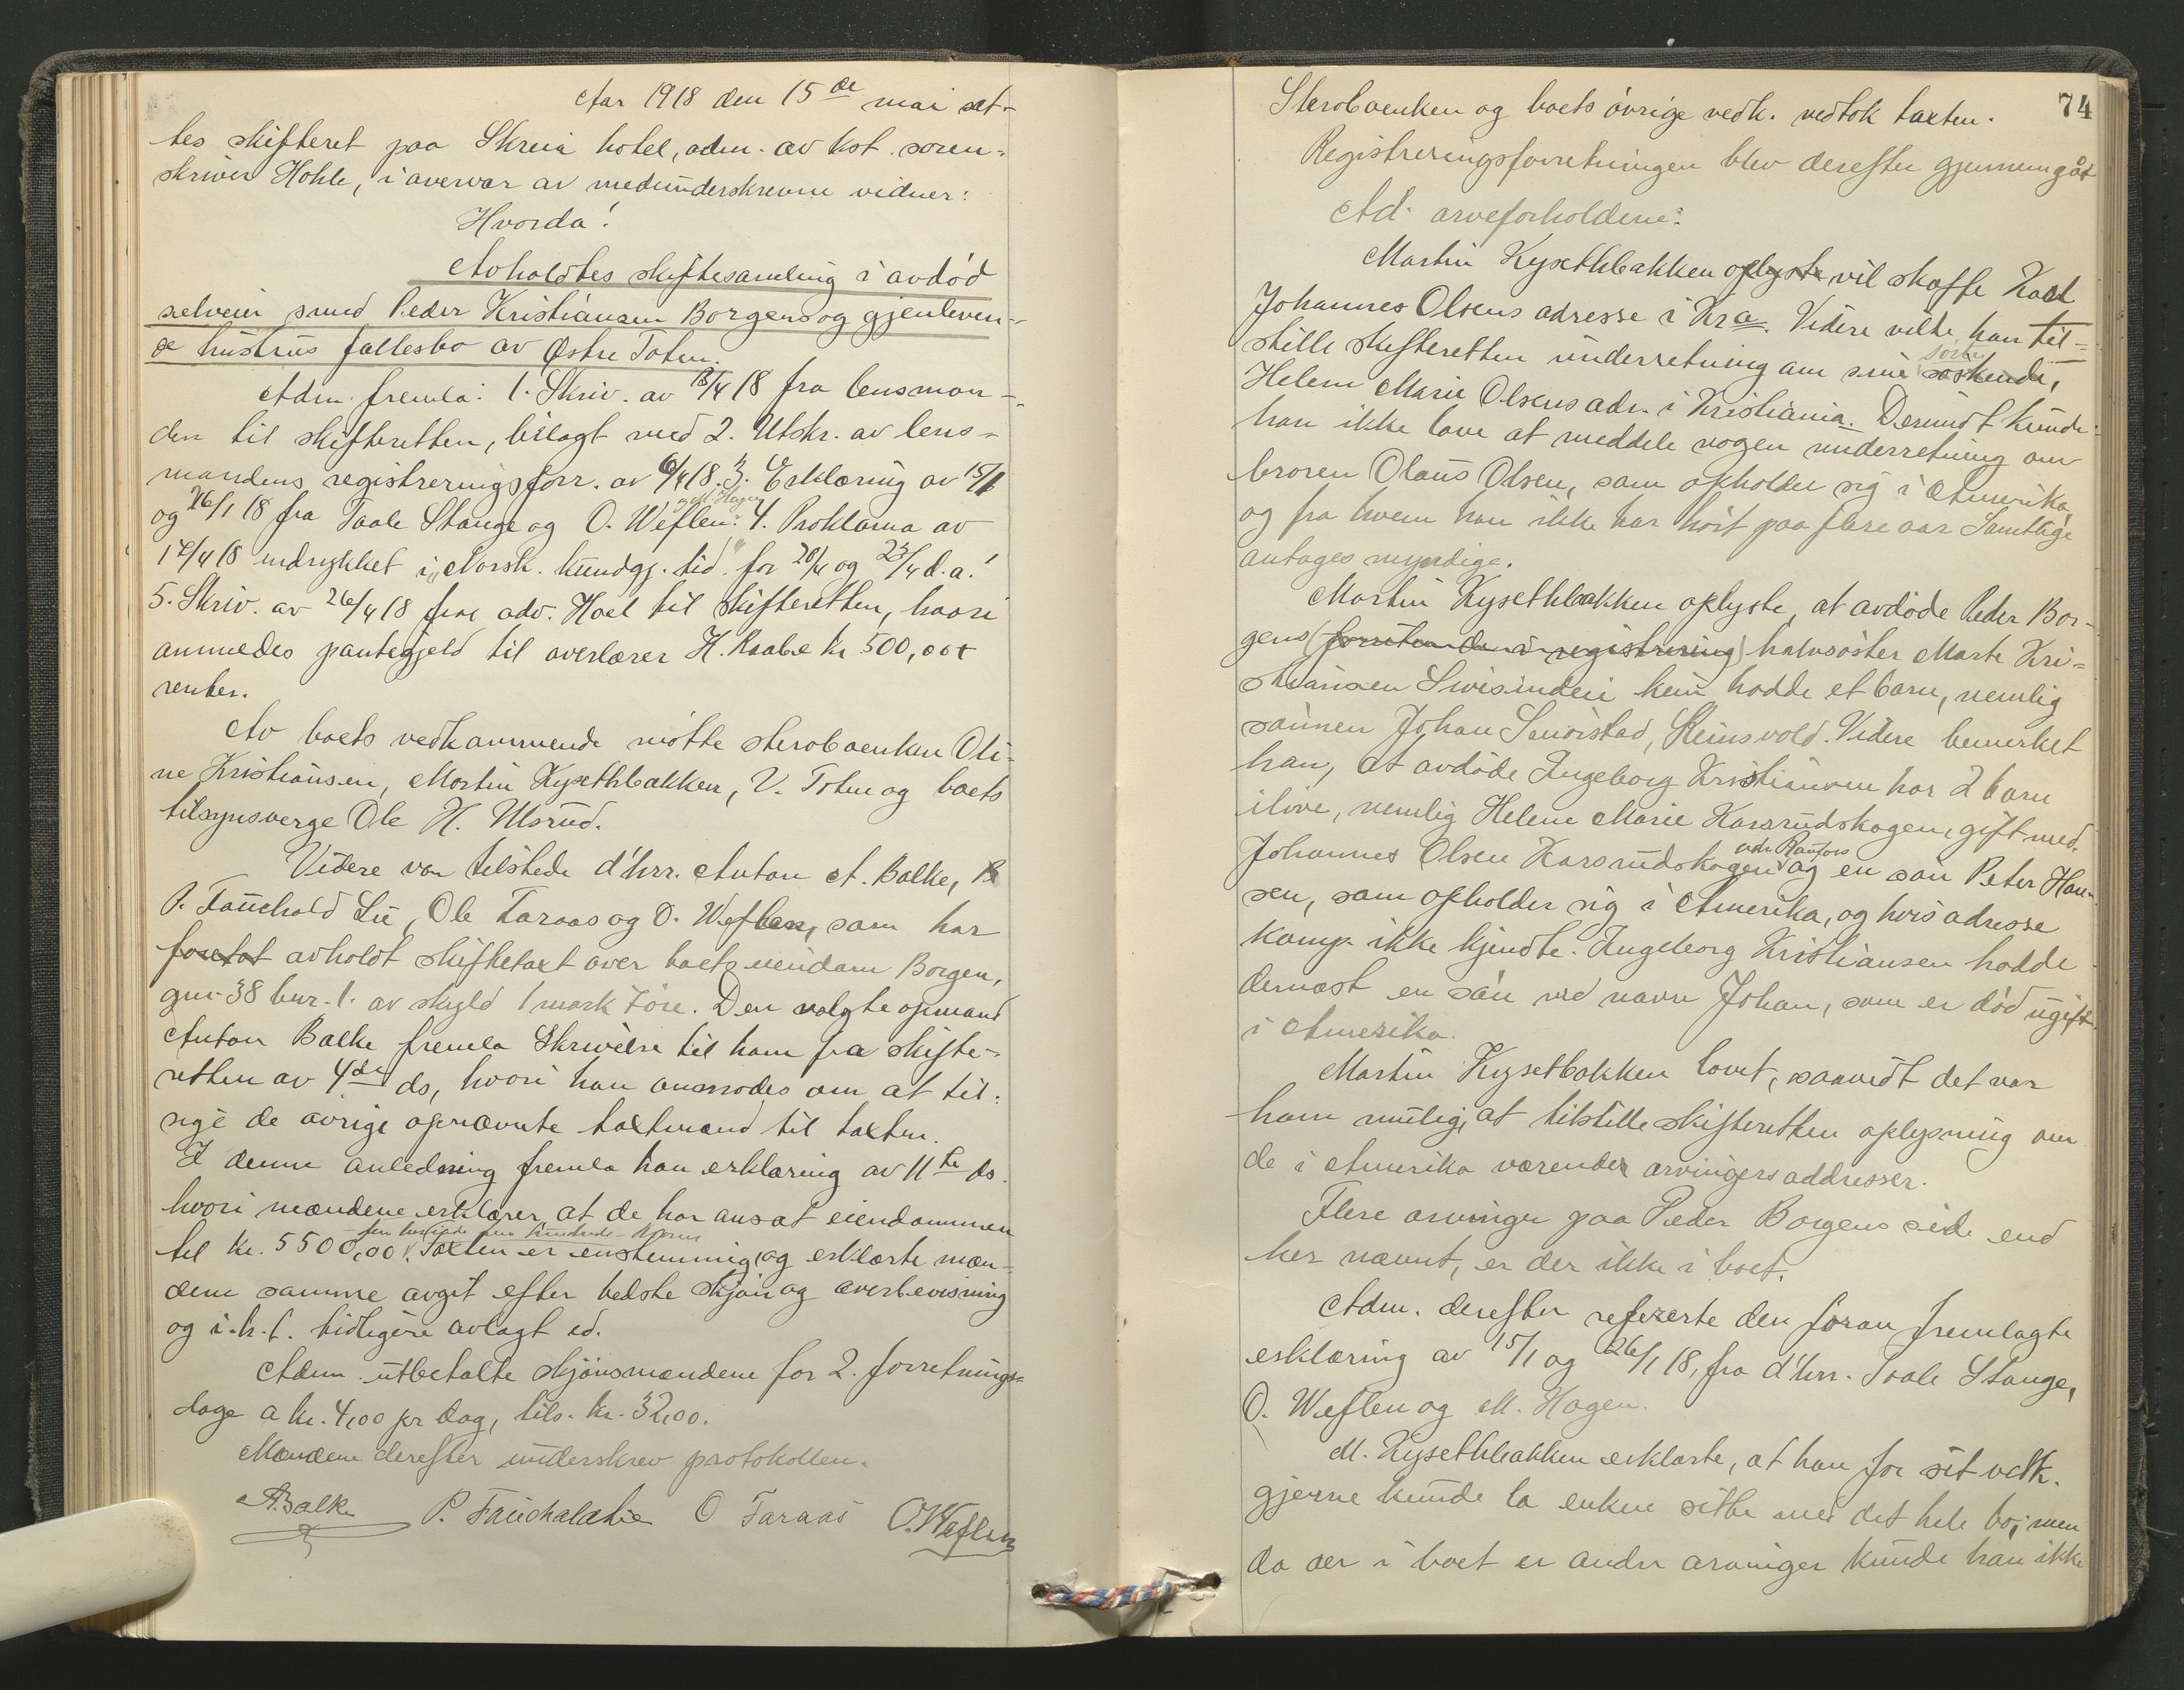 Aar 1918 den 15de mai sat-
tes skifteret paa Skreia hotel, adm. av kst. soren-
skriver Hohle, i overvær av medunderskrevne vidner:
Hvorda!
Avholdtes skiftesamling i avdød
selveier smed Peder Kristiansen Borgens og gjenleven-
de hustrus fællesbo av Østre Toten.
Adm. fremla: 1. Skriv. av 13/4 18 fra lensman-
den til skifteretten, bilagt med 2. Utskr. av lens-
mandens registreringsforr. av 6/4 18. 3. Erklæring av 15/1
og M. Hagen
og 26/1 18 fra Paale Stange og O. Weflen. 4. Proklama av
17/4 18 indrykket i "Norsk. kundgj. tid" for 20/4 og 23/4 d.a.
5. Skriv. av 26/4 18 fra adv. Hoel til skifteretten, hvori
anmeldes pantegjeld til overlærer H. Raabe kr. 500,00 +
renter.
Av boets vedkommende møtte sterboenken Oli-
ne Kristiansen, Martin Kysethbakken, V. Toten og boets
tilsynsverge Ole H. Ulsrud.
Videre var tilstede d'hrr. Anton A. Balke,
P. Fauchald Lie, Ole Taraas og O. Weflen, som har
foretat avholdt skiftetaxt over boets eiendom Borgen,
gnr. 38 bnr. 1. av skyld 1 mark 7 øre. Den valgte opmand
Anton Balke fremla Skrivelse til ham fra skifte-
retten av 4de ds, hvori han anmodes om at til-
sige de øvrige opnævnte taxtmænd til taxten.
I denne anledning fremla han erklæring av 11te ds.
hvori mændene erklærer at de har ansat eiendommen
fem tusinde fem hundrede kroner
til kr. 5500,00. Taxten er enstemmig og erklærte mæn-
dene samme avgit efter bedste skjøn og overbevisning
og i.h.t. tidligere avlagt ed.
Adm. utbetalte skjønsmændene for 2. forretnings-
dage a kr. 4,00 pr dag, tils. kr. 32,00.
Mændene derefter underskrev protokollen.
A Balke P. Fauchald Lie O Taraas O. Weflen
74
Sterboenken og boets øvrige vedk. vedtok taxten.
Registreringsforretningen blev derefter gjennemgåt
Ad. arveforholdene:
Martin Kysethbakken oplyste vil skaffe Karl
Johannes Olsens adresse i Kra. Videre vilde han til-
stille skifteretten underretning om sine søskende,
søster
Helene Marie Olsens adr. i Kristiania. Derimot kunde
han ikke love at meddele nogen underretning om
broren Olaus Olsen, som opholder sig i Amerika,
og fra hvem han ikke har hørt paa flere aar. Samtlige
antages myndige.
Martin Kysethbakken oplyste, at avdøde Peder Bor-
gens (foruten de i registrering) halvsøster Marte Kri-
stiansen hadde et barn, nemlig
sønnen Johan Smørstad, Steinsvold. Videre bemerket
han, at avdøde Ingeborg Kristiansen har 2 barn
ilive, nemlig Helene Marie Karsrudskogen, gift med.
adr. Raufoss
Johannes Olsen Karsrudskogen og en søn Peter Han-
sen, som opholder sig i Amerika, og hvis adresse
komp. ikke kjendte. Ingeborg Kristiansen hadde
dernæst en søn ved navn Johan, som er død ugift
i Amerika.
Martin Kysetbakken lovet, saavidt det var
ham mulig, at tilstille skifteretten oplysning om
de i Amerika værende arvingers addresser.
Flere arvinger paa Peder Borgens side end
her nævnt, er der ikke i boet.
Adm. derefter refererte den foran fremlagte
erklæring av 15/1 og 26/1 18, fra d'hrr. Paale Stange,
O. Weflen og M. Hagen.
M. Kysethbakken erklærte, at han for sit vedk.
gjerne kunde la enken sitte med det hele bo; men
da der i boet er andre arvinger kunde han ikke